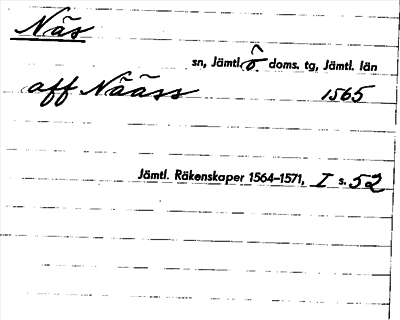 Näs
sn, Jämtl. ö. doms. tg, Jämtl. län
aff Nääss 1565
Jämtl. Räkenskaper 1564–1571, I s. 52